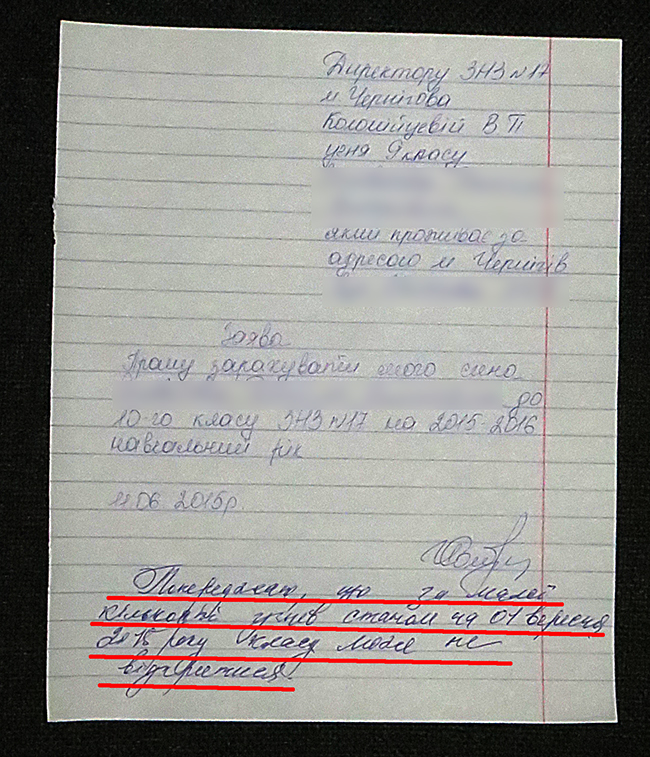 Директору ЗНЗ №17
м Чернігова
Коломійцевій В П
ученя 9 класу
який проживає за
адресою м Чернігів
Заява
Прошу зарахувати мого сина
до
10-го класу ЗНЗ №17 на 2015-2016
навчальний рік
11.06.2015р.
Попереджаю, що за малої
кількості учнів станом на 01 вересня
2015 року класу може не
відкритися.